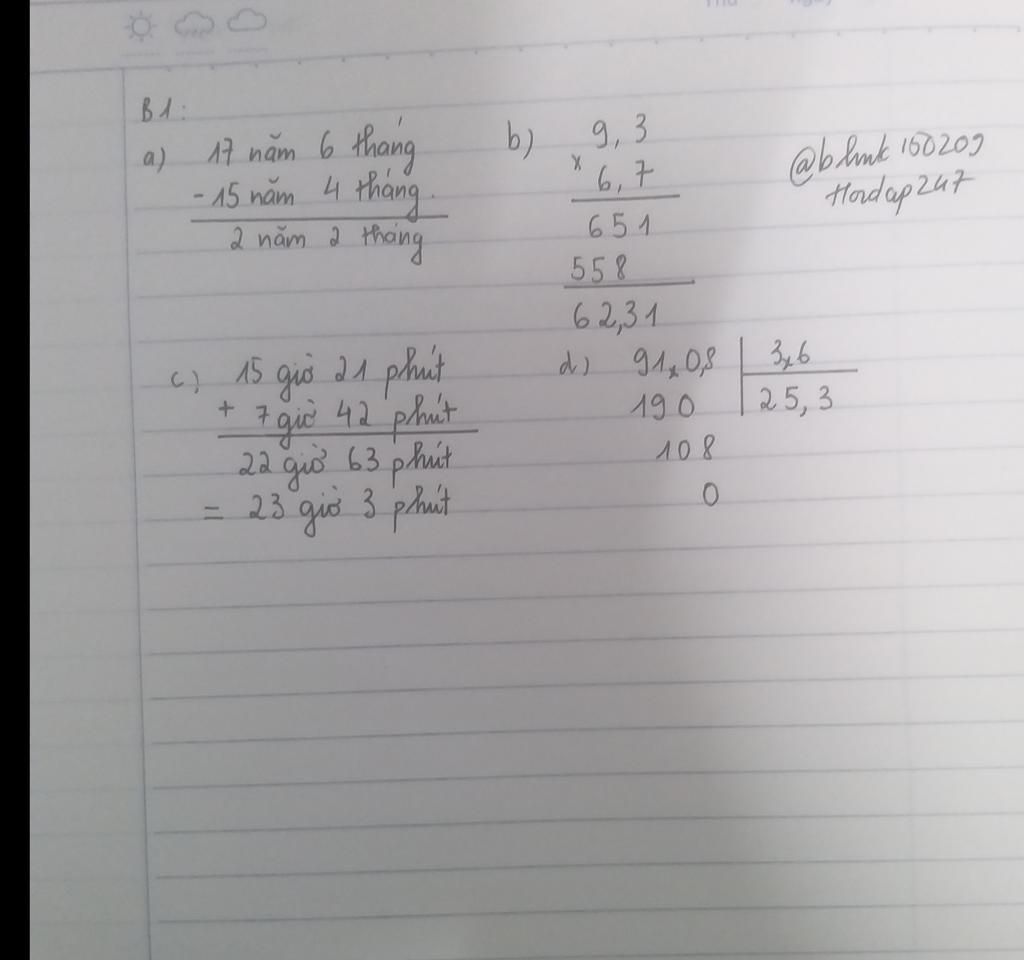 B1:
a) 17 năm 6 tháng
- 15 năm 4 tháng
2 năm 2 tháng
b) 9,3
x 6,7
651
558
62,31
@blink150209
Hoidap247
c) 15 giờ 21 phút
+ 7 giờ 42 phút
22 giờ 63 phút
= 23 giờ 3 phút
d) 91,0,8 | 3,6
190 | 25,3
108
0